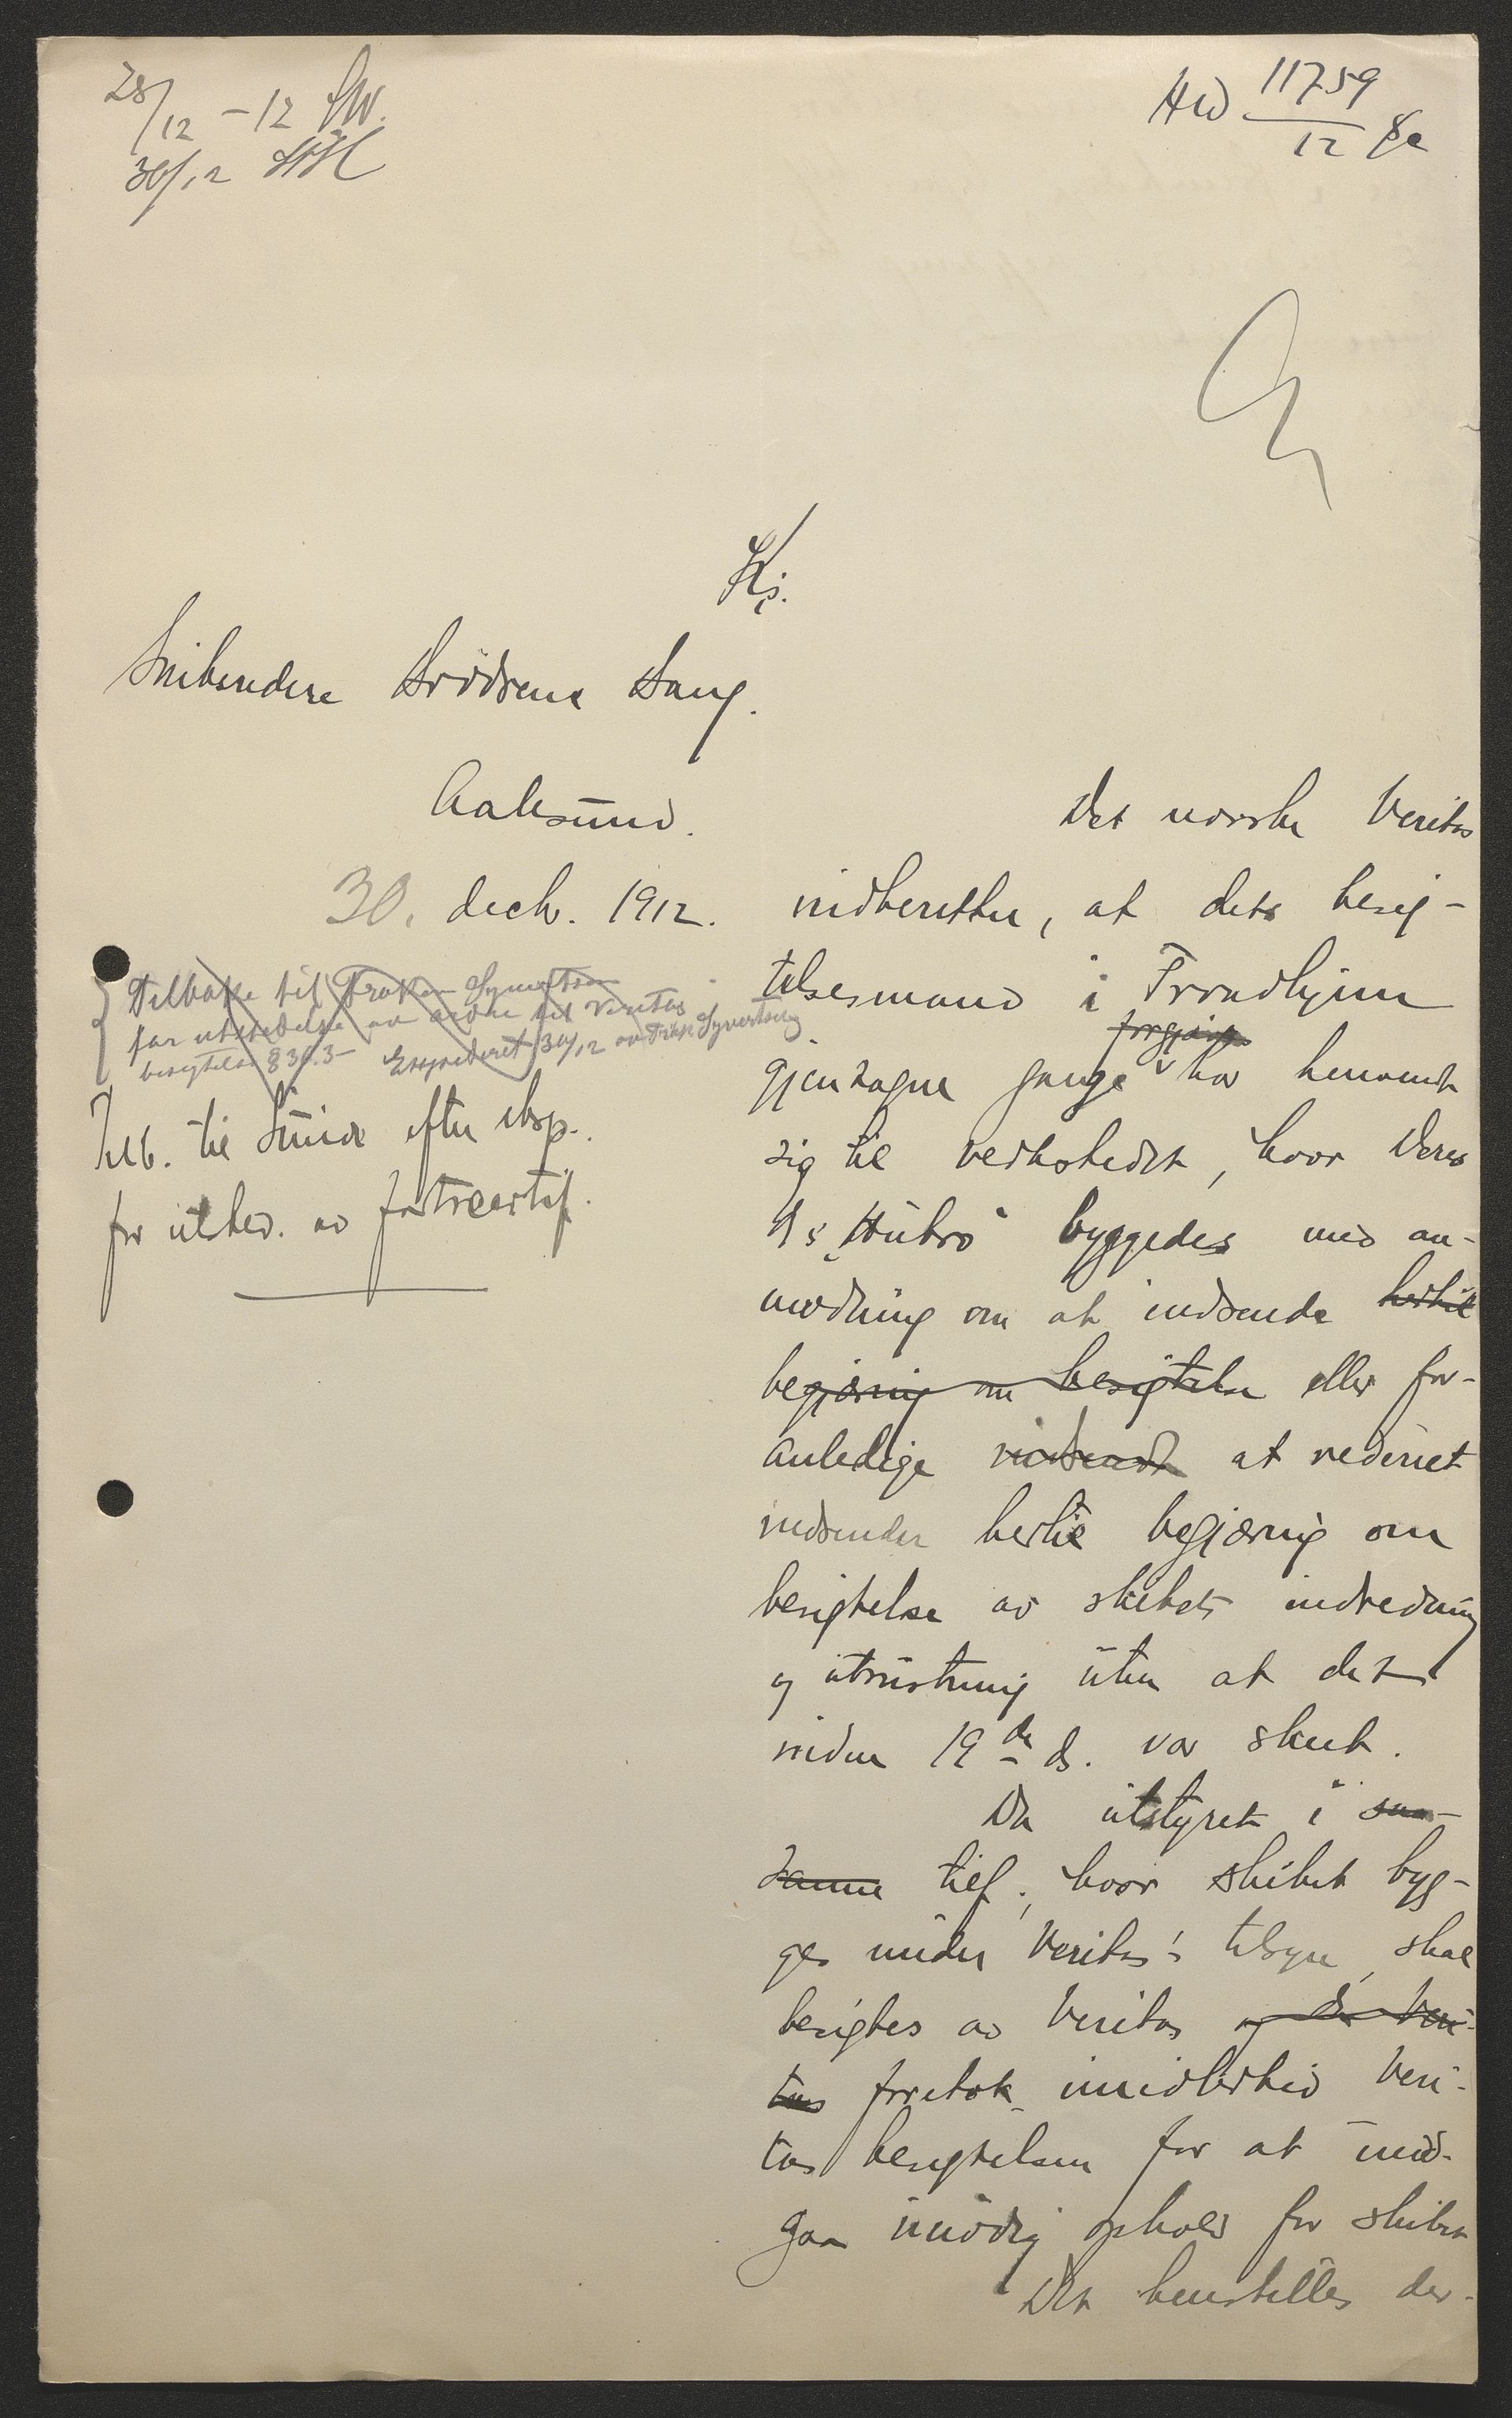 28/12 - 12 SW.
30/12
HD 11759/12
Kj.
Skibsredere Brödrene Bang.
Aalesund.
30. decb. 1912.
Tilbake til Frøken Syvertsen
for utstedelse av ordre til Veritas
besigtelse § 36.3 Expederet 30/12 av Frk. Syvertsen
Tilb. til Smide efter eksp.
for utsted. av fartscertif.
Det norske Veritas
indberetter, at dets besig-
telsesmand i Trondhjem
forgjæves
gjentagne gange har henvendt
sig til verkstedet, hvor Deres
D/s "Hubro" byggedes med an-
modning om at indsende hertil
begjæring om besigtelse eller for-
anledige indsendt at rederiet
indsender hertil begjæring om
besigtelse av skibets indredning
og utrustning uten at det
inden 19de ds. var skeet.
Da utstyret i saa-
danne tilf., hvor skibet byg-
ges under Veritas's tilsyn, skal
besigtes av Veritas og da Veri-
tas foretok imidlertid Veri-
tas besigtelsen for at und-
gaa unödig ophold for skibet
Det henstilles der-